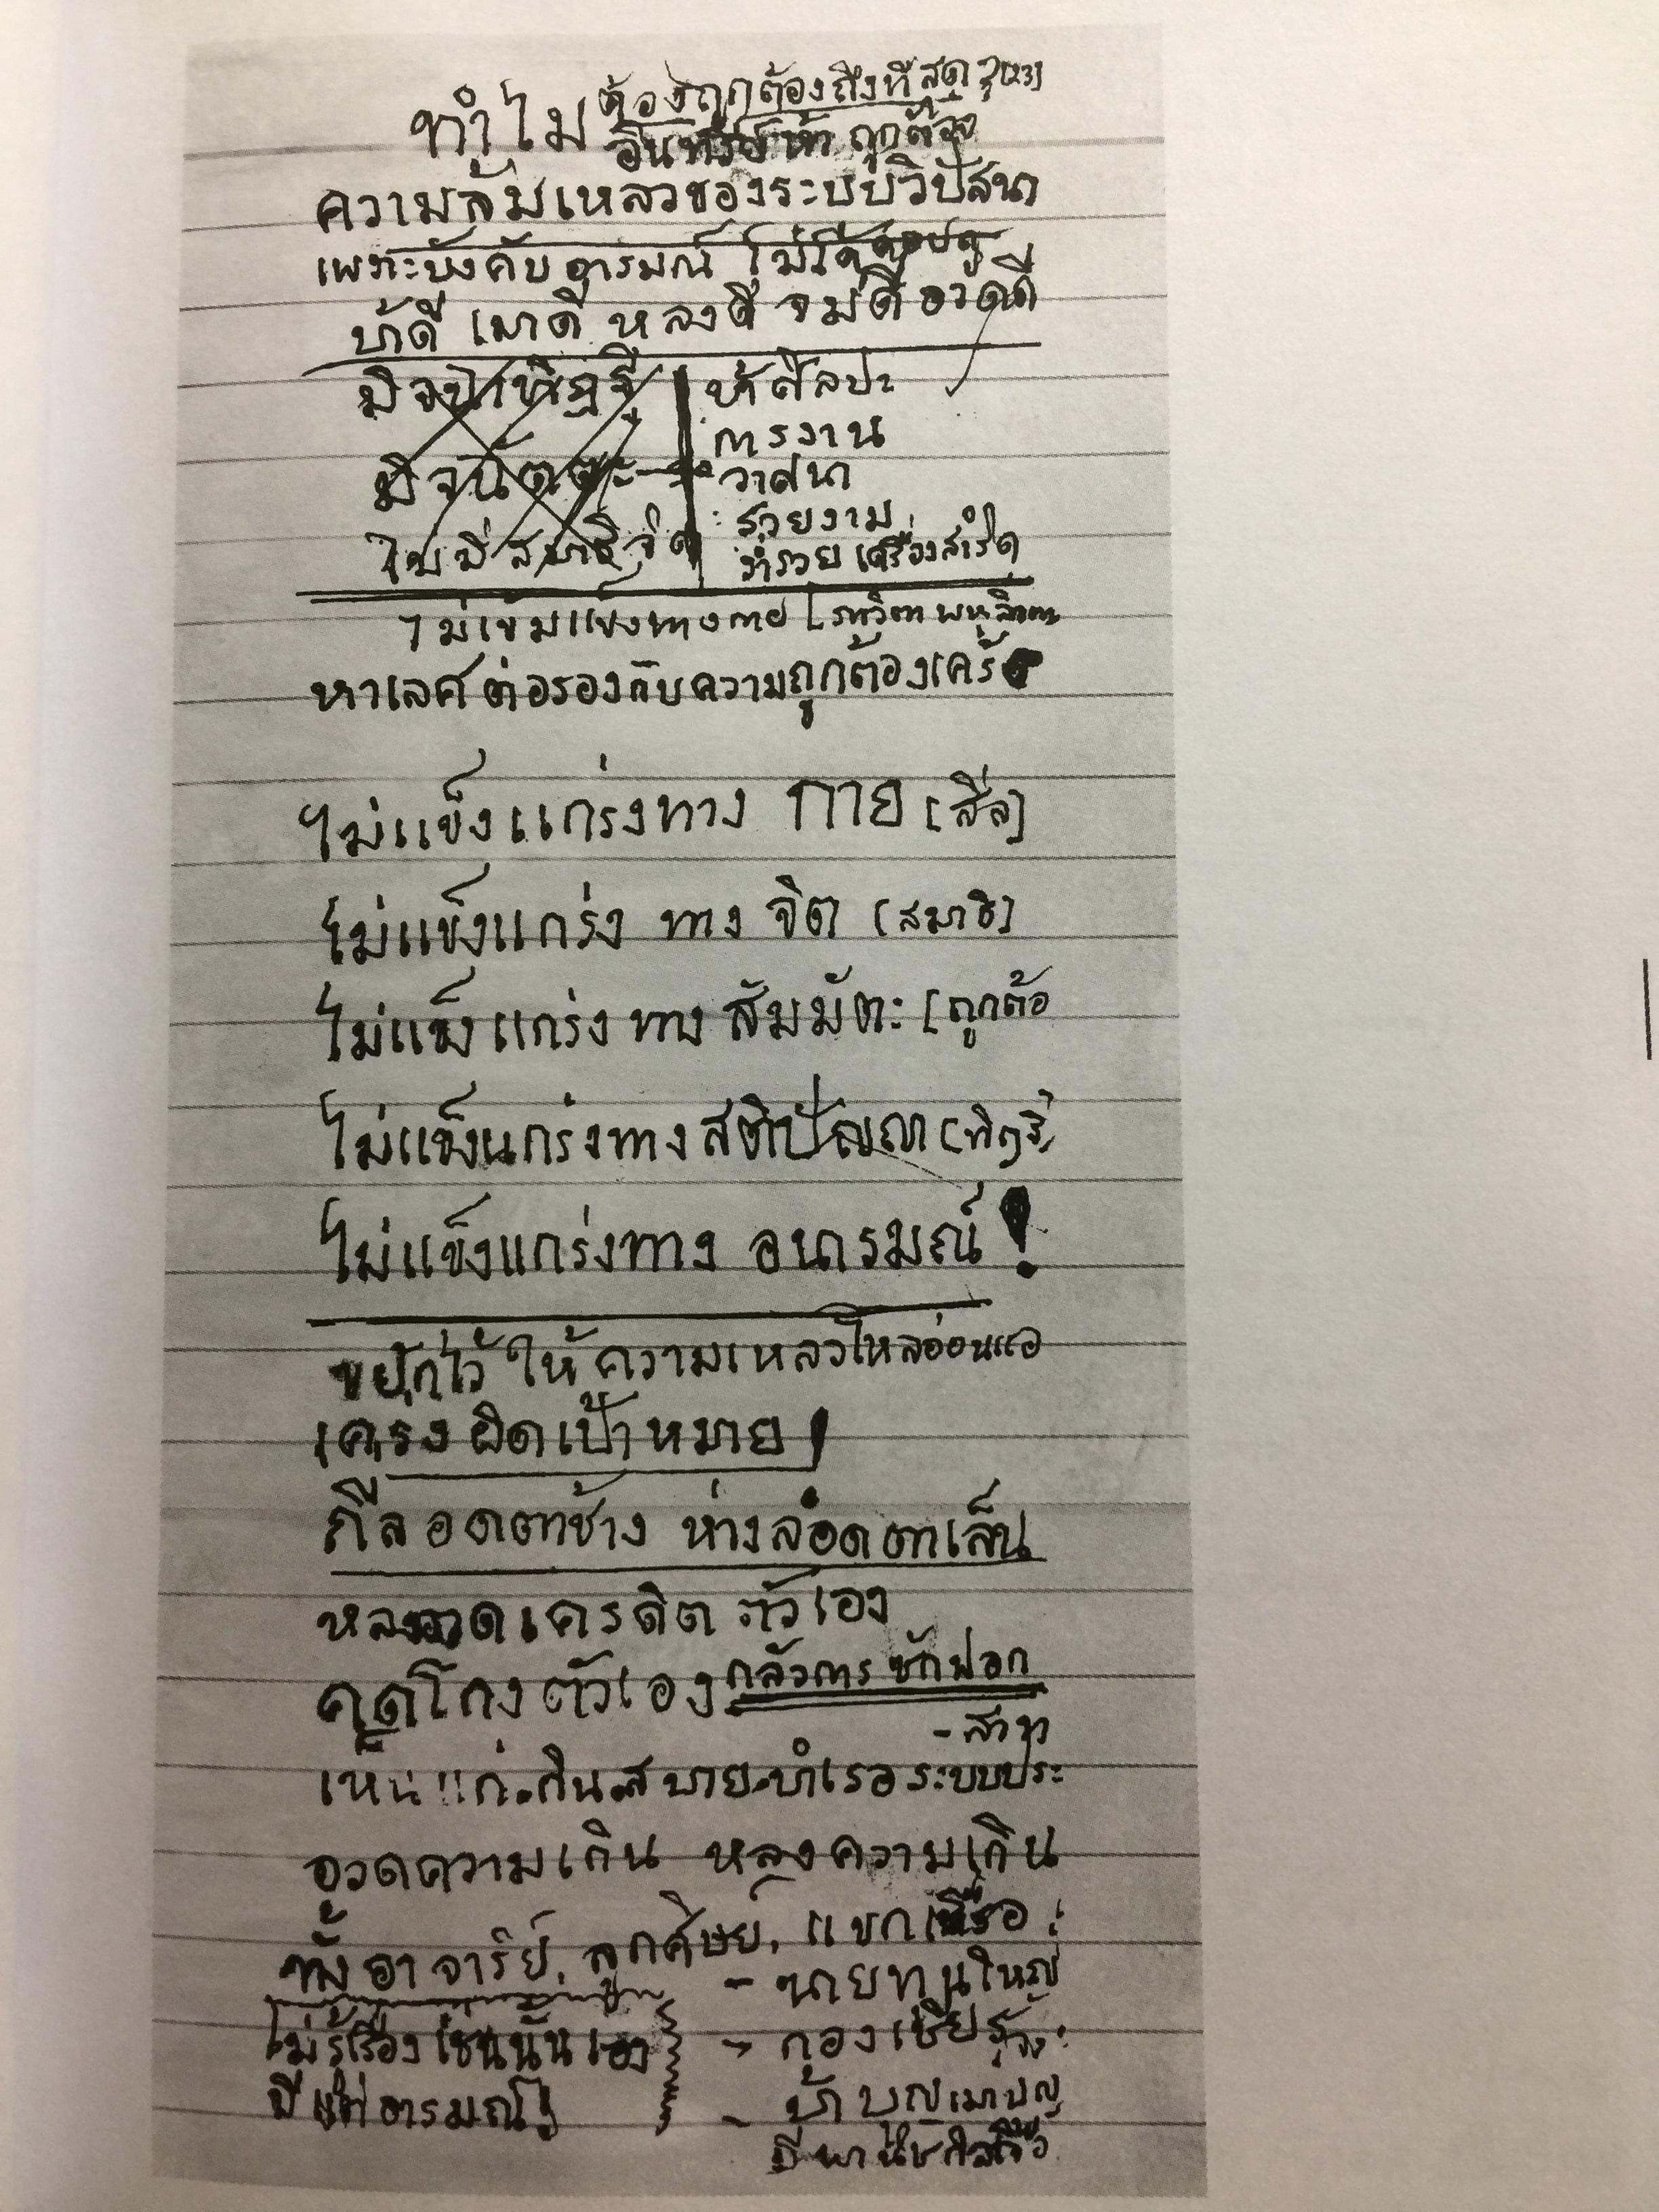 ทำไม ต้องถูกต้องถึงที่สุด? [23]
อินทรีย์ห้า ถูกต้อง
ความล้มเหลวของระบบวิปัสนา
เพราะบังคับอารมณ์ไม่ได้
บ้าดี เมาดี หลงดี จมดี อวดดี
มิจฉาทิฏฐิ
บ้าศีลปะ
การงาน
มิจฉัตตะ
วาสนา
สวยงาม
ไม่มีสมาธิจิต
ร่ำรวย เครื่องสำริด
ไม่เข้มแข็งทางกาย [ภาวิตา พหุลีกตา
หาเลศต่อรองกับความถูกต้องเคร่
ไม่แข็งแกร่งทาง กาย [สีล]
ไม่แข็งแกร่ง ทาง จิต [สมาธิ]
ไม่แข็งแกร่ง ทาง สัมมัตตะ [ถูกต้อ
ไม่แข็งแกร่งทางสติปัญญา [ทิฏฐิ]
ไม่แข็งแกร่งทาง อารมณ์!
ขยักไว้ ให้ความเหลวไหลอ่อนแอ
เคร่งผิดเป้าหมาย!
ถี่ลอดตาช้าง ห่างลอดตาเล็น
หลงอวดเครดิตตัวเอง
คดโกงตัวเอง กลัวการซักฟอก
เห็นแก่.กิน.สบาย.บำเรอ ระบบประ
-สาท
อวดความเกิน หลงความเกิน
ทั้งอาจารย์, ลูกศิษย์, แขกเหรื่อ
- นายทุนใหญ่
ไม่รู้เรื่องเช่นนั้นเอง
- กองเชียร์
มีแต่อารมณ์!
- บ้าบุญเมาบุญ